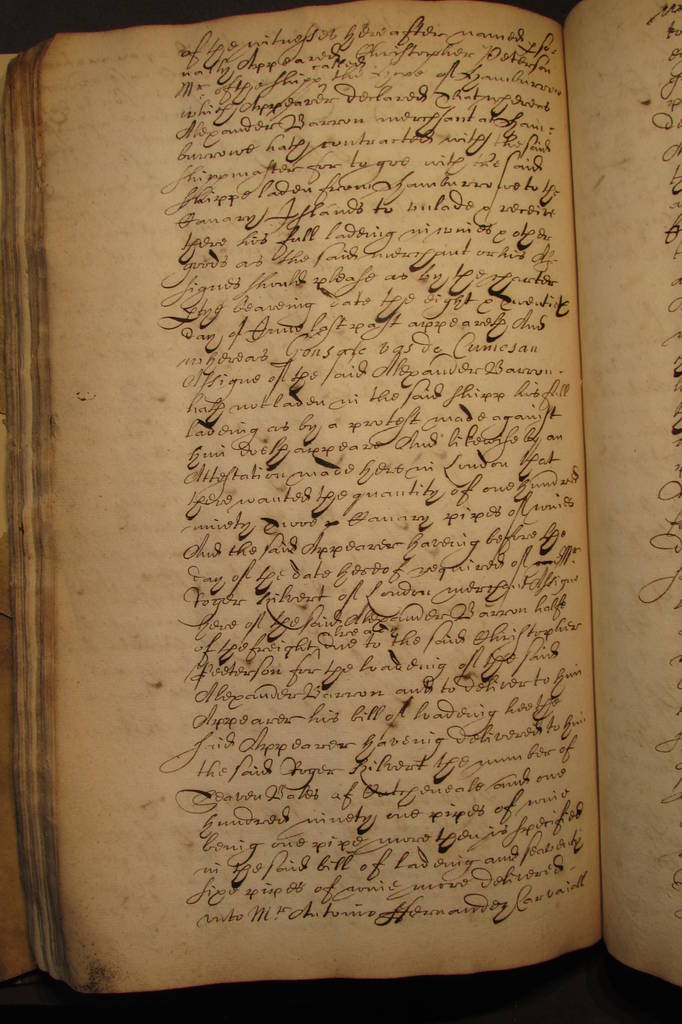 of the witnesses hereafter named p̱so-
nally Appeared Christopher Peterson
Mr of the shipp called the of Hamburrow
which Appearer declared That whereas
Alexander Barron merchant at Ham-
burrowe hath contracted with the said
shippmaster for to goe with the said
shippe laden from Hamburrowe to the
Canary Islands to unlade & receive
there his full ladeing in wines & other
goods as the said merchant or his As-
signes should please as by the charter
party beareing date the eight & Twentieth
day of June last past appeareth And
whereas Gonsalo Vas de
Assigne of the said Alexander Barron
hath not laden in the said shipp his full
ladeing as by a protest made against
him doeth appeare And likewise by an
Attestation made here in London that
there wanted the quantity of one hundred
ninety Twoo Canary pipes of wines
And the said Appearer having before the
day of the date hereof required of Mr
Roger Kilvert of London merchant Assigne
here of the said Alexander Barron halfe
of the freight due to the said Christopher
Peeterson for the loadeing of the said
Alexander Barron and to deliver to him
Appearer his bill of loadeing hee the
said Appearer haveing delivered to him
the said Roger Kilvert the number of
Seaven Bales of Cutcheneale and one
hundred ninety one pipes of wine
being one pipe more then is specified
in the said bill of ladeing and seaventy
sixe pipes of wine more delivered
unto Mr Antonio Ffernandez Carvajall